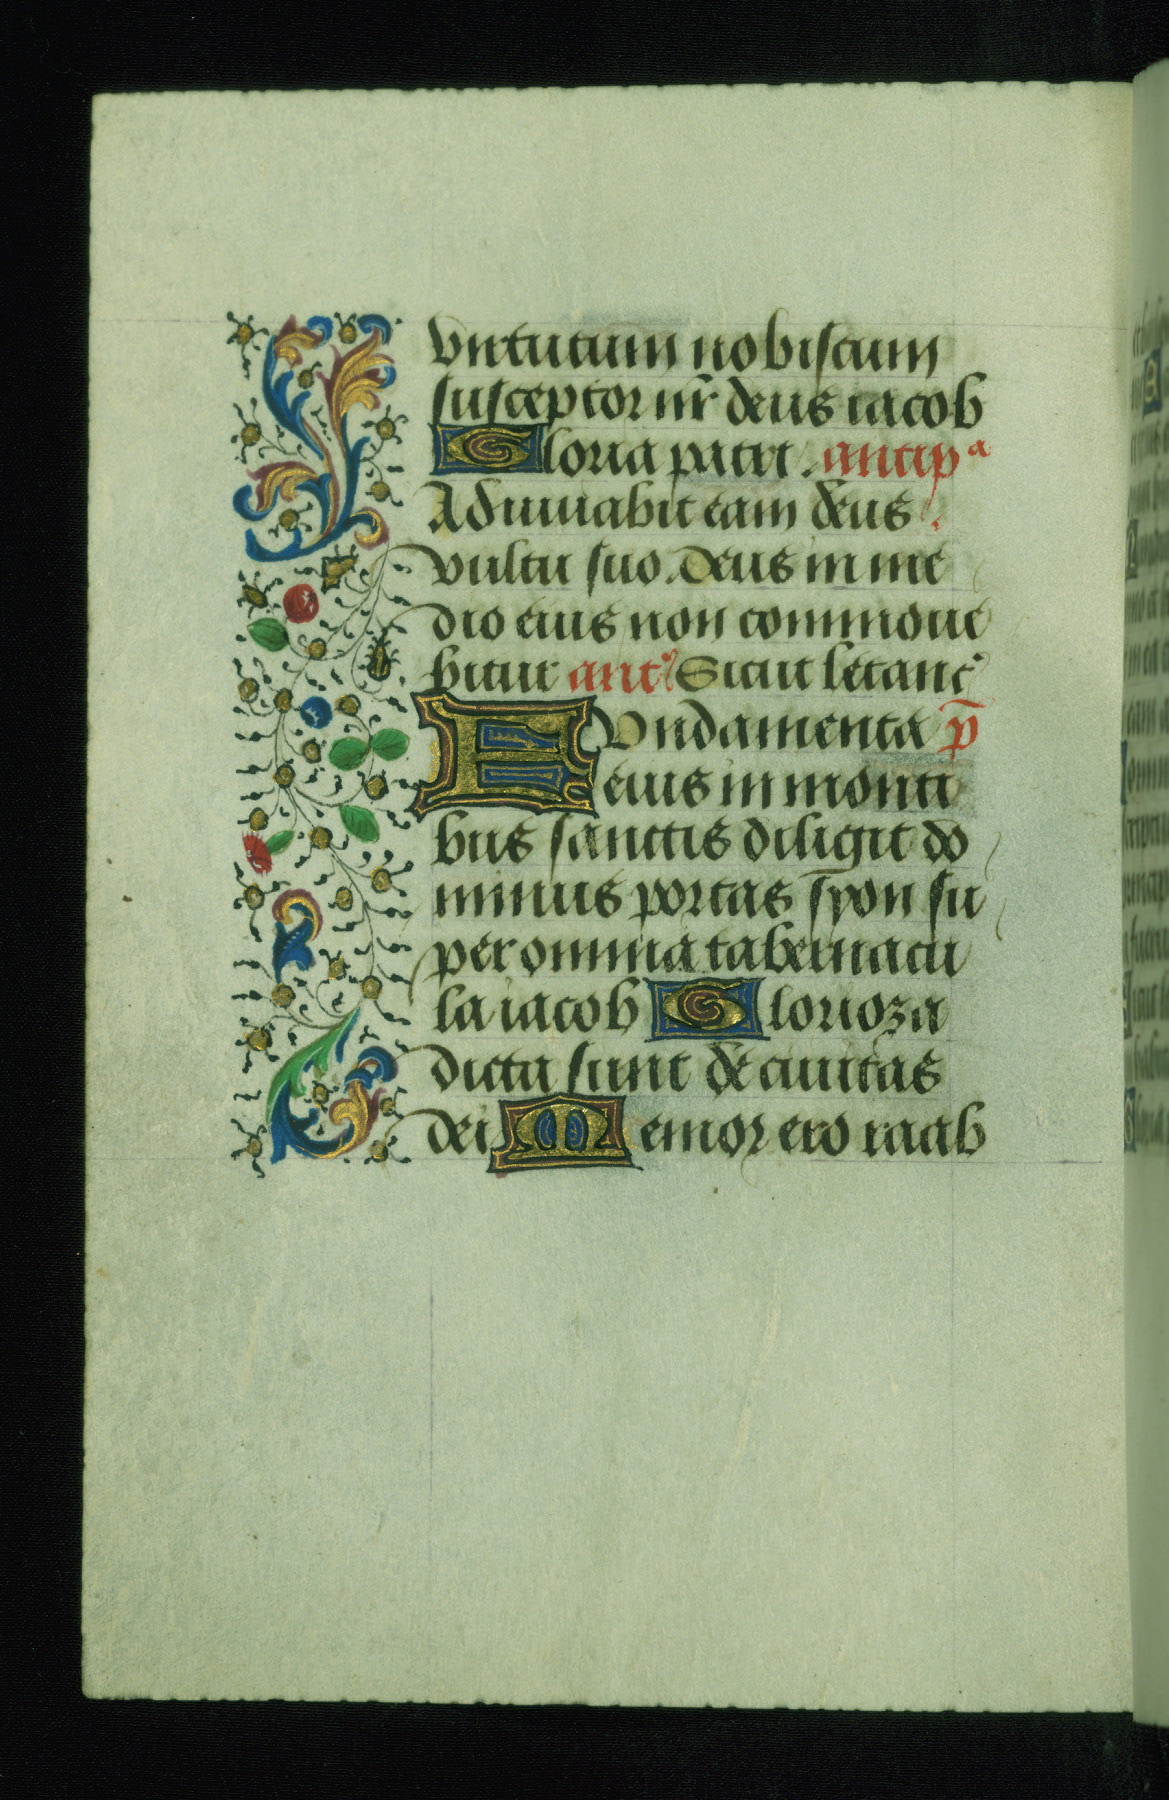 virtutum nobiscum
susceptor nr̄ deus iacob
Gloria patri. antipᵃ
Adiuuabit eam deus
vultu suo. Deus in me
dio eius non commoue
bitur ant' Sicut letanc'
FVndamenta p̄
eius in monti
bus sanctis diligit do
minus portas syon su
per omnia tabernacu
la iacob Glorioza
dicta sunt de ciuitas
dei Memor ero raab